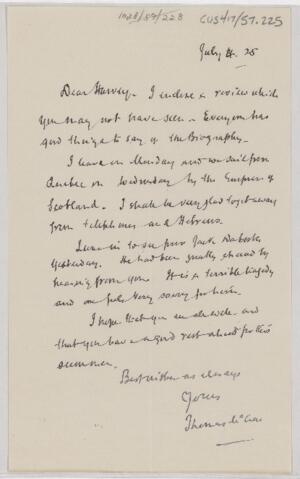 1028/87/228
CUS417/57.225
July 4. 25
Dear Harvey. I enclose a review which
you may not have seen. Everyone has
good things to say of the Biography.
I leave on Monday and we sail from
Quebec on Wednesday by the Empress of
Scotland. I shall be very glad to get away
from telephones and
I was in to see poor Jack
yesterday. He had been greatly cheered by
hearing from you. It is a terrible tragedy
and one feels very sorry for him.
I hope that you are all well and
that you have a good rest ahead for this
summer.
Best wishes as always
Yours
Thomas